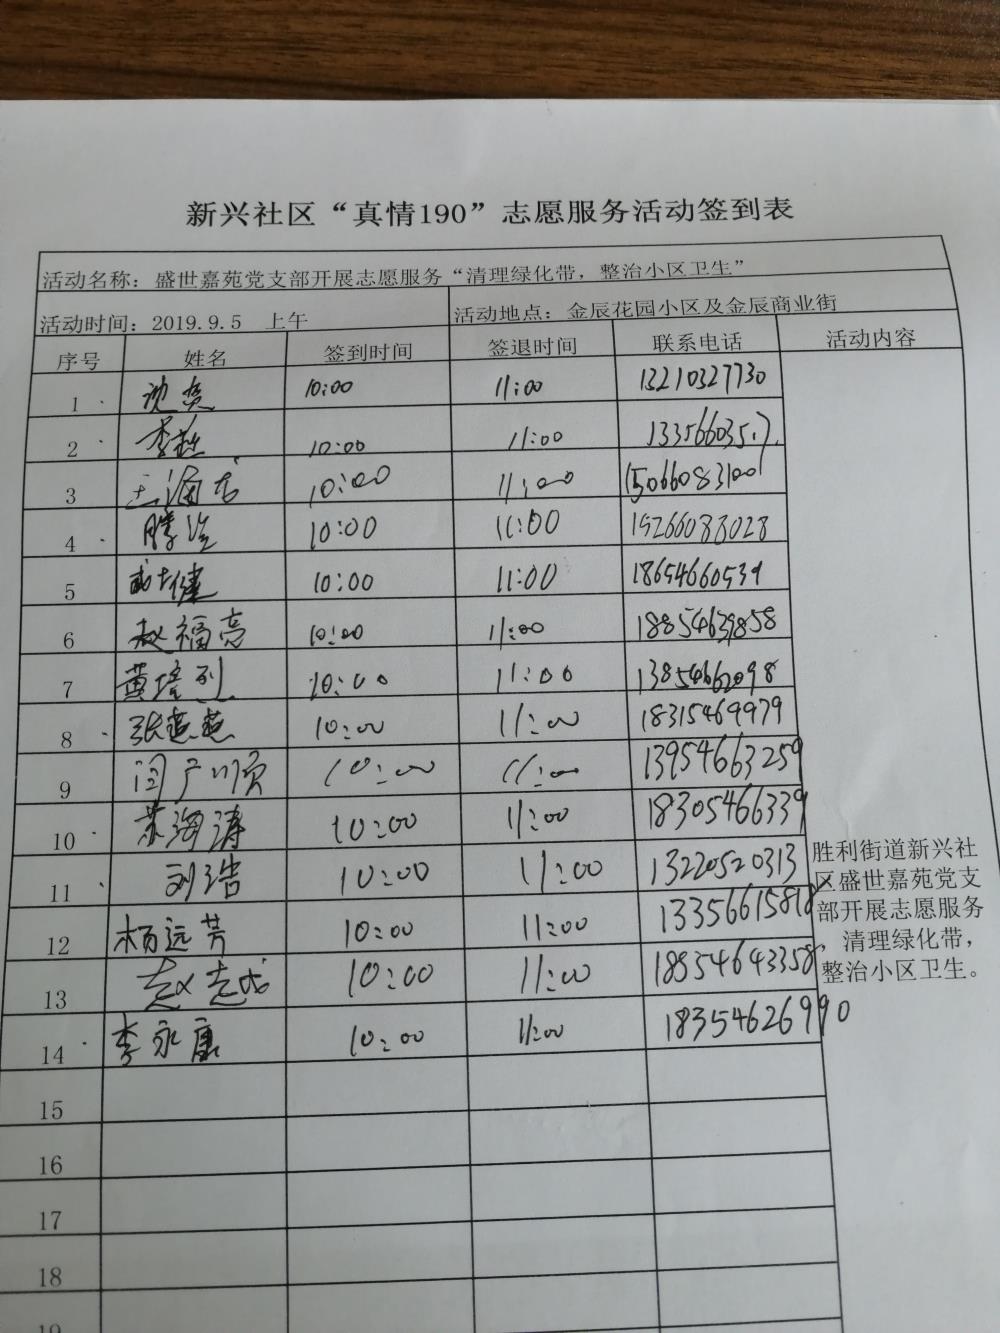 新兴社区“真情190”志愿服务活动签到表
活动名称：盛世嘉苑党支部开展志愿服务“清理绿化带，整治小区卫生”
活动时间：2019.9.5 上午 活动地点：金辰花园小区及金辰商业街
序号 姓名 签到时间 签退时间 联系电话 活动内容
1 10:00 11:00 13210327730
2 10:00 11:00
3 10:00 11:00 15066083100
4 10:00 11:00 15266088028
5 10:00 11:00 18654660539
6 赵福亮 10:00 11:00 18854639858
7 黄培烈 10:00 11:00 13854662098
8 张燕燕 10:00 11:00 18315469979
9 闫广顺 10:00 11:00 13954663259
10 苏海涛 10:00 11:00 18305466339
11 刘浩 10:00 11:00 13220520313
12 杨远芳 10:00 11:00 13356615818
13 赵志成 10:00 11:00 18954643358
14 李永康 10:00 11:00 18354626990
胜利街道新兴社
区盛世嘉苑党支
部开展志愿服务
，清理绿化带，
整治小区卫生。
15
16
17
18
19